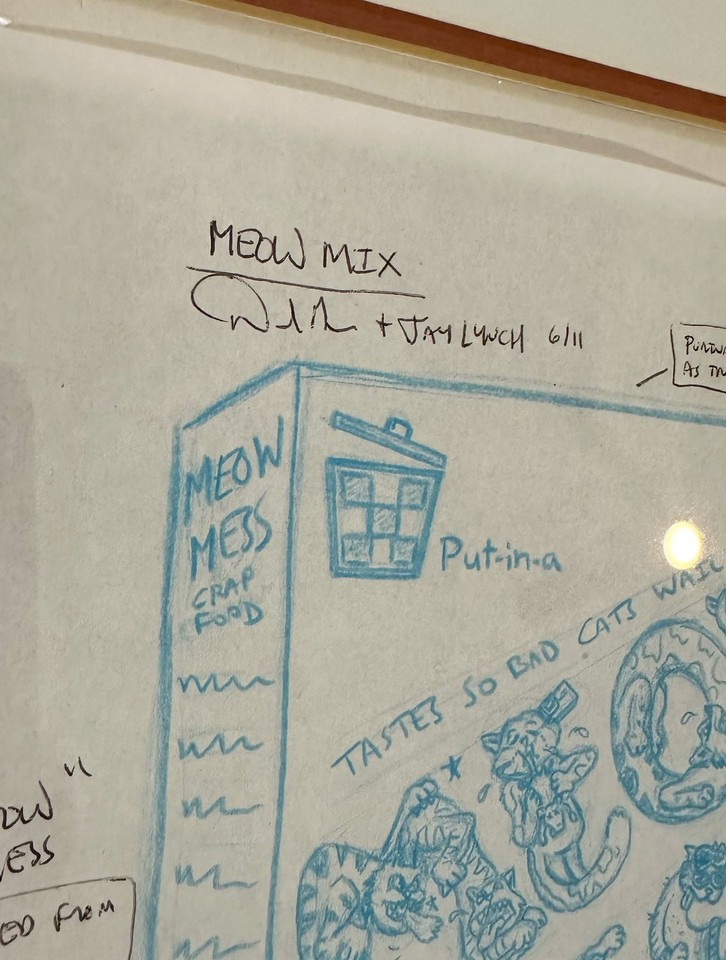 MEOW MIX
+ JAY LYNCH 6/11
AS
MEOW
MESS
CRAP
FOOD
Put-in-a
TASTES SO BAD CATS WAIL
FROM